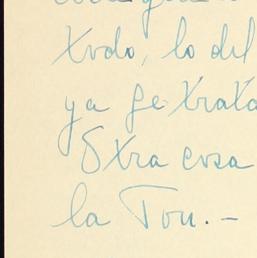 Todo, lo del
ya se trata
Otra cosa
la Tou. -